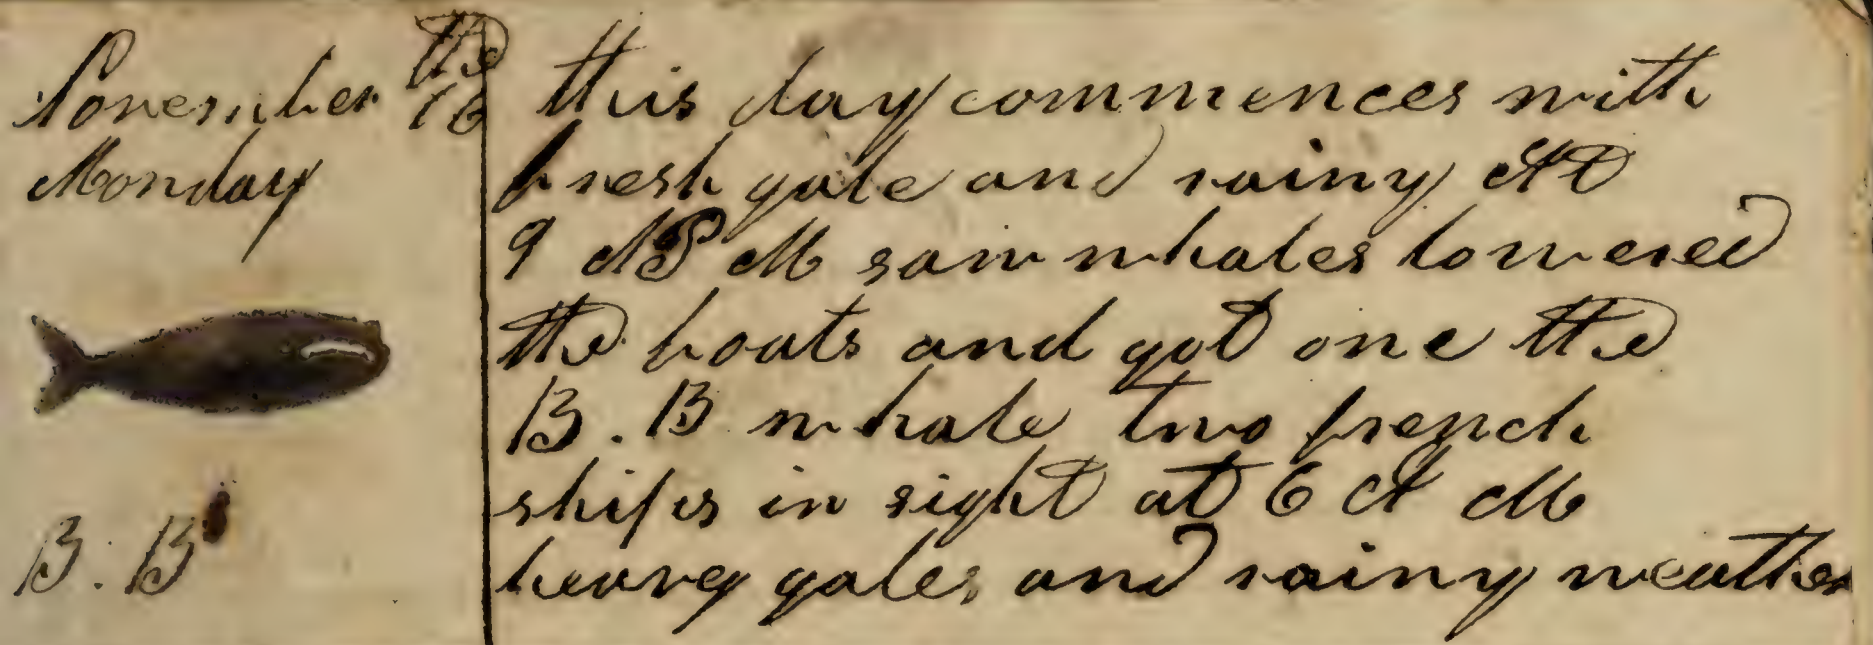 November the 16
Monday
B. B
this day commences with
fresh gale and rainy At
9 P M saw whales lowered
the boats and got one the
B. B whale two french
ships in sight at 6 A M
heavy gales and rainy weather